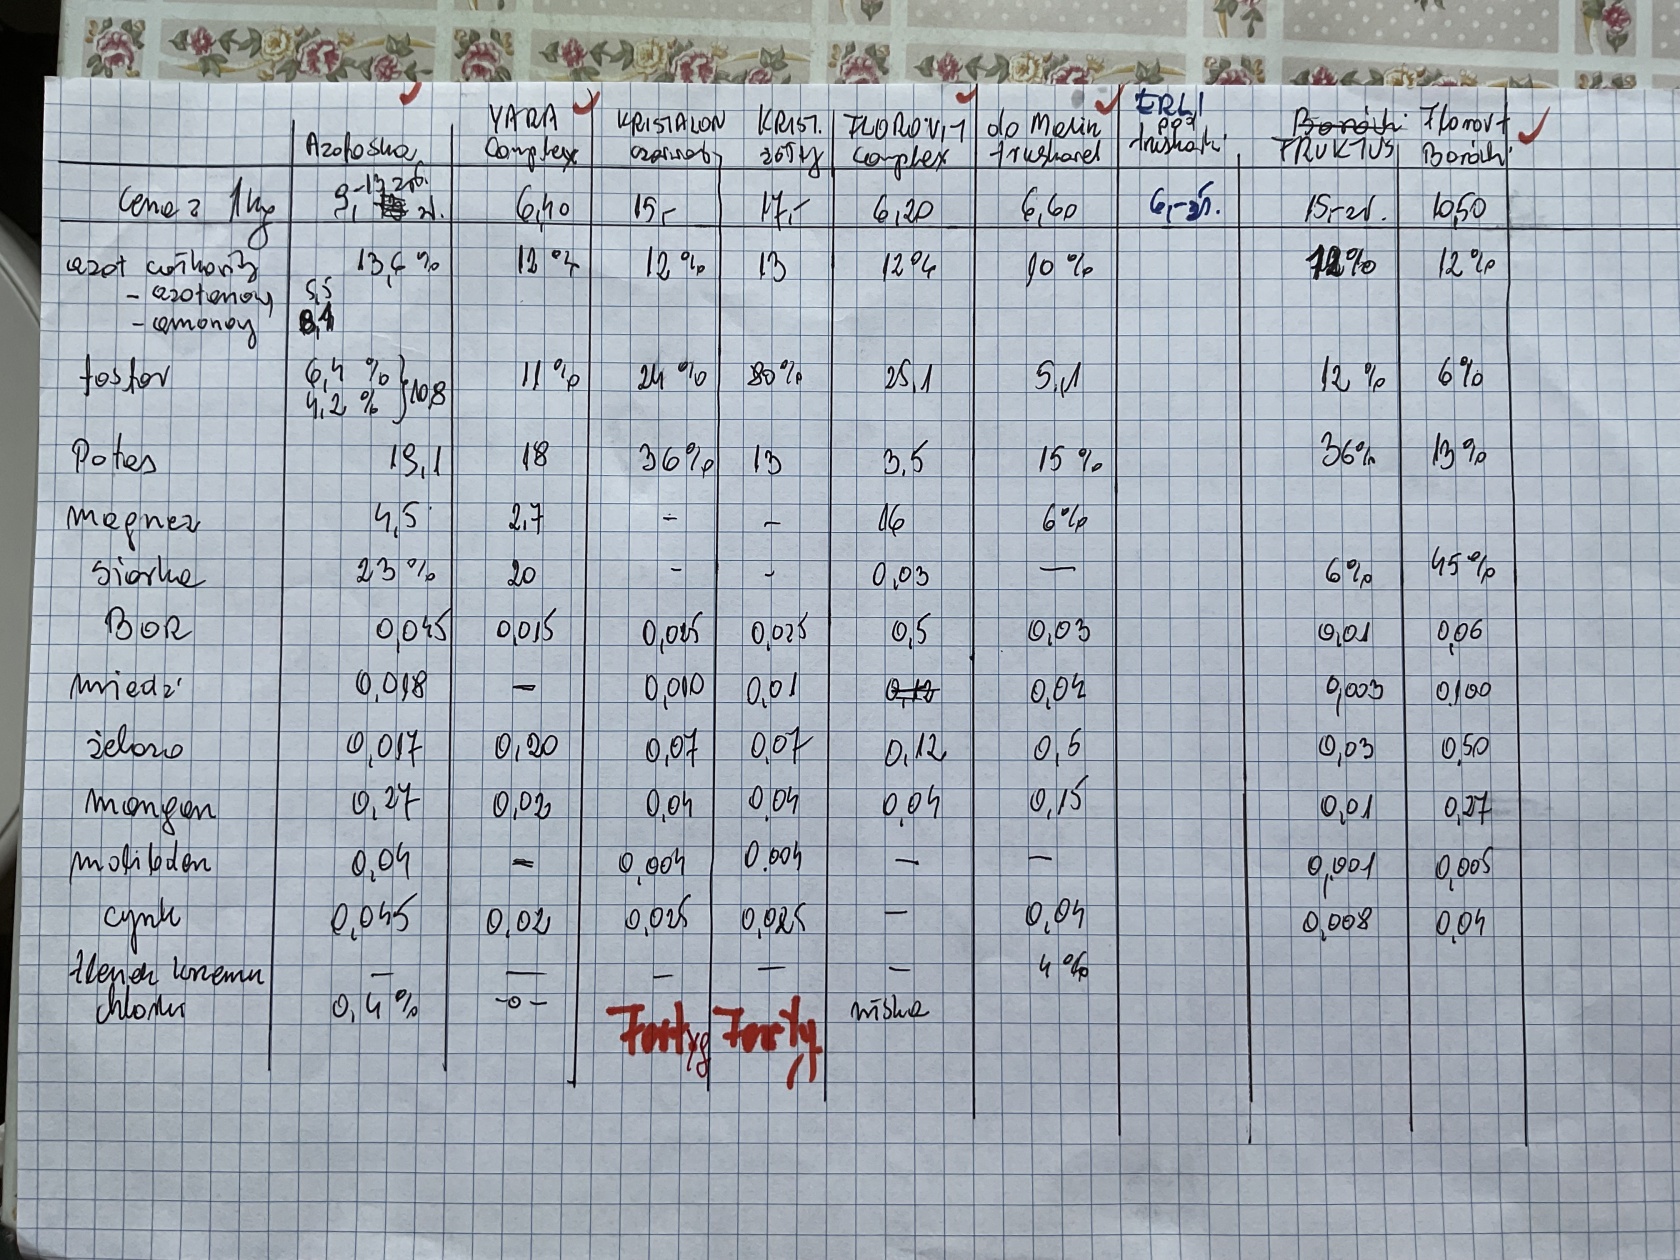 YARA KRISTALON KRIST. FLOROVIT do Malin ERLI Florovit
Azofoska Complex czerwony żółty Complex truskawek ppa truskawki FRUKTUS Borówki
Cena z 1kg 9,-13 zł. zł. 6,40 15,- 17,- 6,20 6,60 6,-zł. 15,-zł. 10,50
azot całkowity 13,6 % 12 % 12 % 13 12 % 10 % 12% 12 %
- azotanowy 5,5
- amonowy 8,1
fosfor 6,4 % 11 % 24 % 80 % 25,1 5,1 12 % 6 %
4,2 % }10,8
Potas 19,1 18 36 % 13 3,5 15 % 36 % 13 %
magnez 4,5 2,7 - - 16 6 %
siarka 23 % 20 - - 0,03 — 6 % 45 %
BOR 0,045 0,015 0,025 0,025 0,5 0,03 0,01 0,06
miedź 0,018 - 0,010 0,01 0,12 0,04 0,003 0,100
żelazo 0,017 0,20 0,07 0,07 0,12 0,6 0,03 0,50
mangan 0,27 0,02 0,04 0,04 0,04 0,15 0,01 0,27
molibden 0,04 - 0,004 0.004 — — 0,001 0,005
cynk 0,045 0,02 0,025 0,025 — 0,04 0,008 0,04
tlenek krzemu — — — — — 4 %
chlorki 0,4 % -0- niska